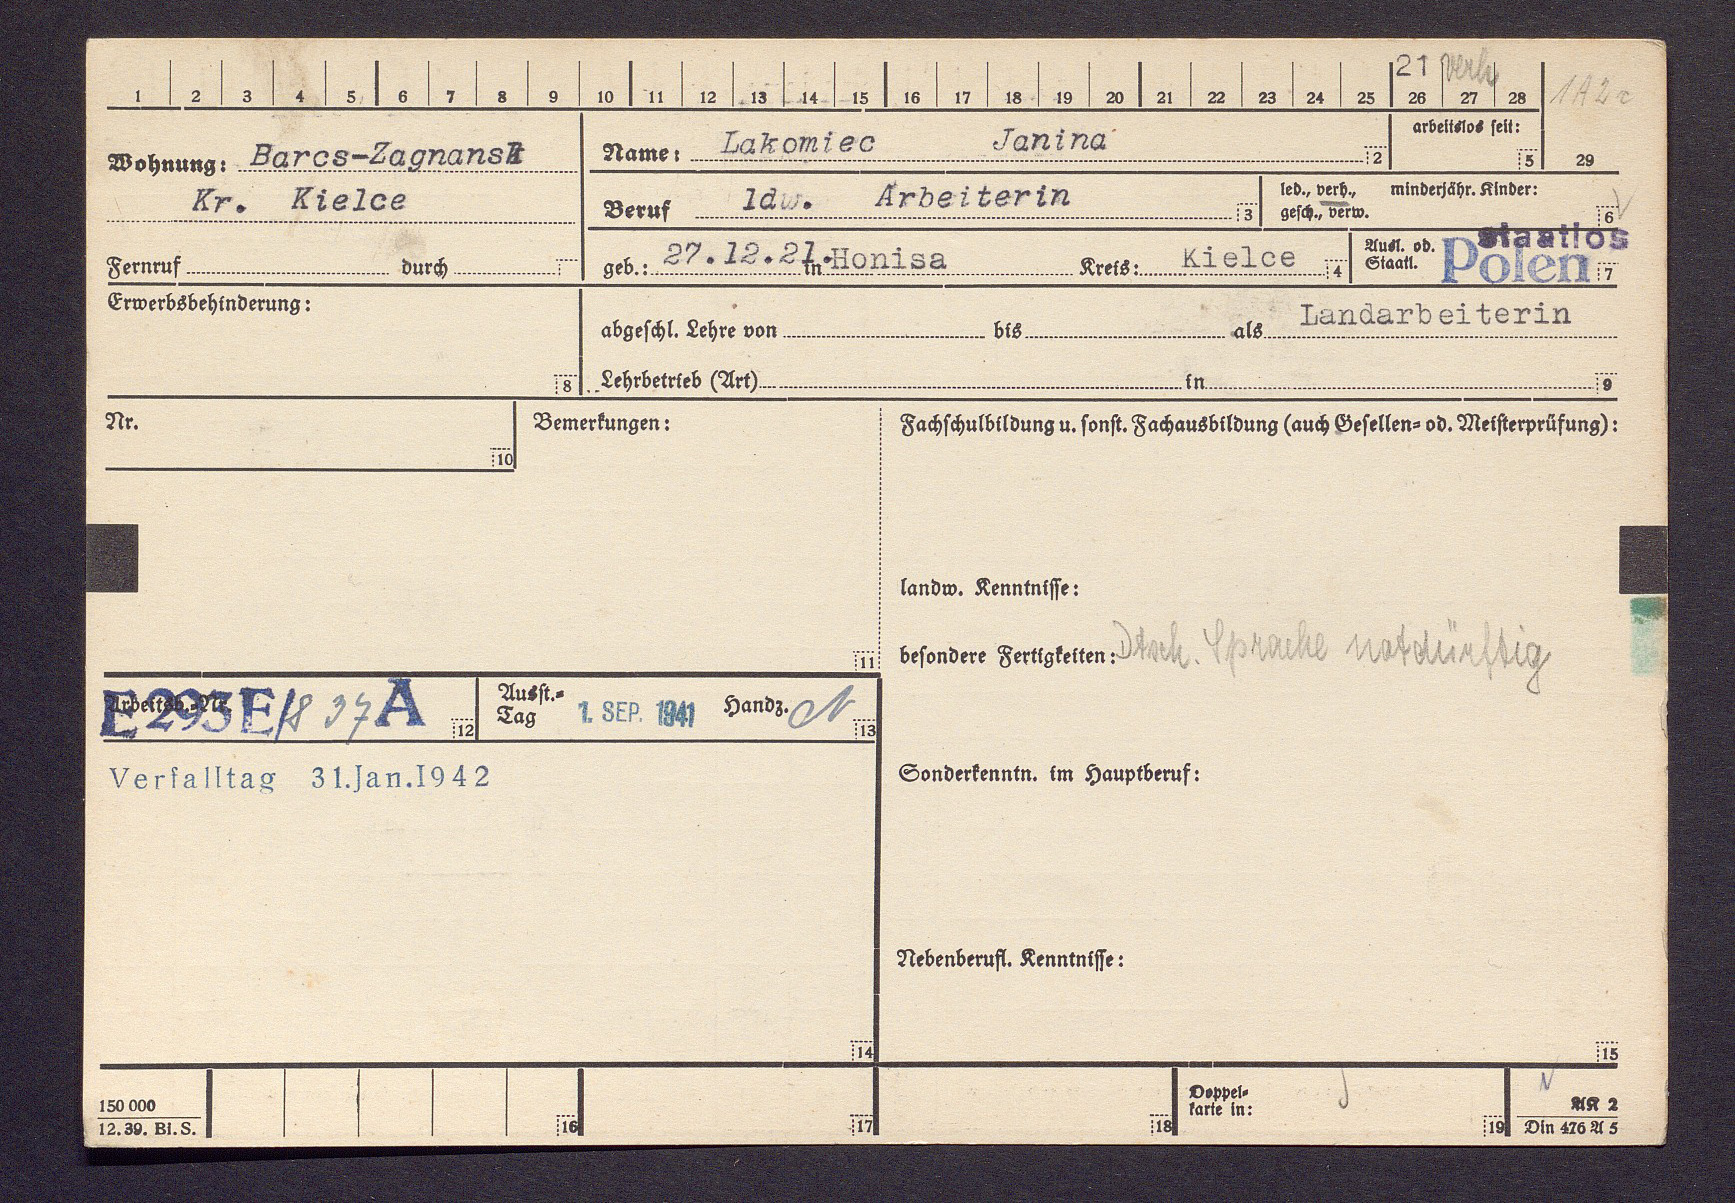 21 verh 1A2c
1 2 3 4 5 6 7 8 9 10 11 12 13 14 15 16 17 18 19 20 21 22 23 24 25 26 27 28
Wohnung: Barcs-Zagnansk
Kr. Kielce
Fernruf durch
Name: Lakomiec Janina 2
arbeitslos seit: 5
29
Beruf ldw. Arbeiterin 3
led., verh., minderjähr. Kinder:
gesch., verw. 6
geb.: 27.12.21. in Honisa Kreis: Kielce 4
Ausl. od. staatlos
Staatl. Polen 7
Erwerbsbehinderung:
8
abgeschl. Lehre von bis als Landarbeiterin
Lehrbetrieb (Art) in 9
Nr.
10
Bemerkungen:
11
Fachschulbildung u. sonst. Fachausbildung (auch Gesellen= od. Meisterprüfung):
landw. Kenntnisse:
besondere Fertigkeiten: Dtsch. Sprache notdürftig
Arbeitsb.-Nr.
E 293 E/837 A 12
Ausst.=
Tag 1. SEP. 1941 Handz. 13
Verfalltag 31.Jan.1942
14
Sonderkenntn. im Hauptberuf:
Nebenberufl. Kenntnisse:
15
150 000
12. 39. Bl. S.
16 17 18
Doppel=
karte in: 19
AK 2
Din 476 A 5